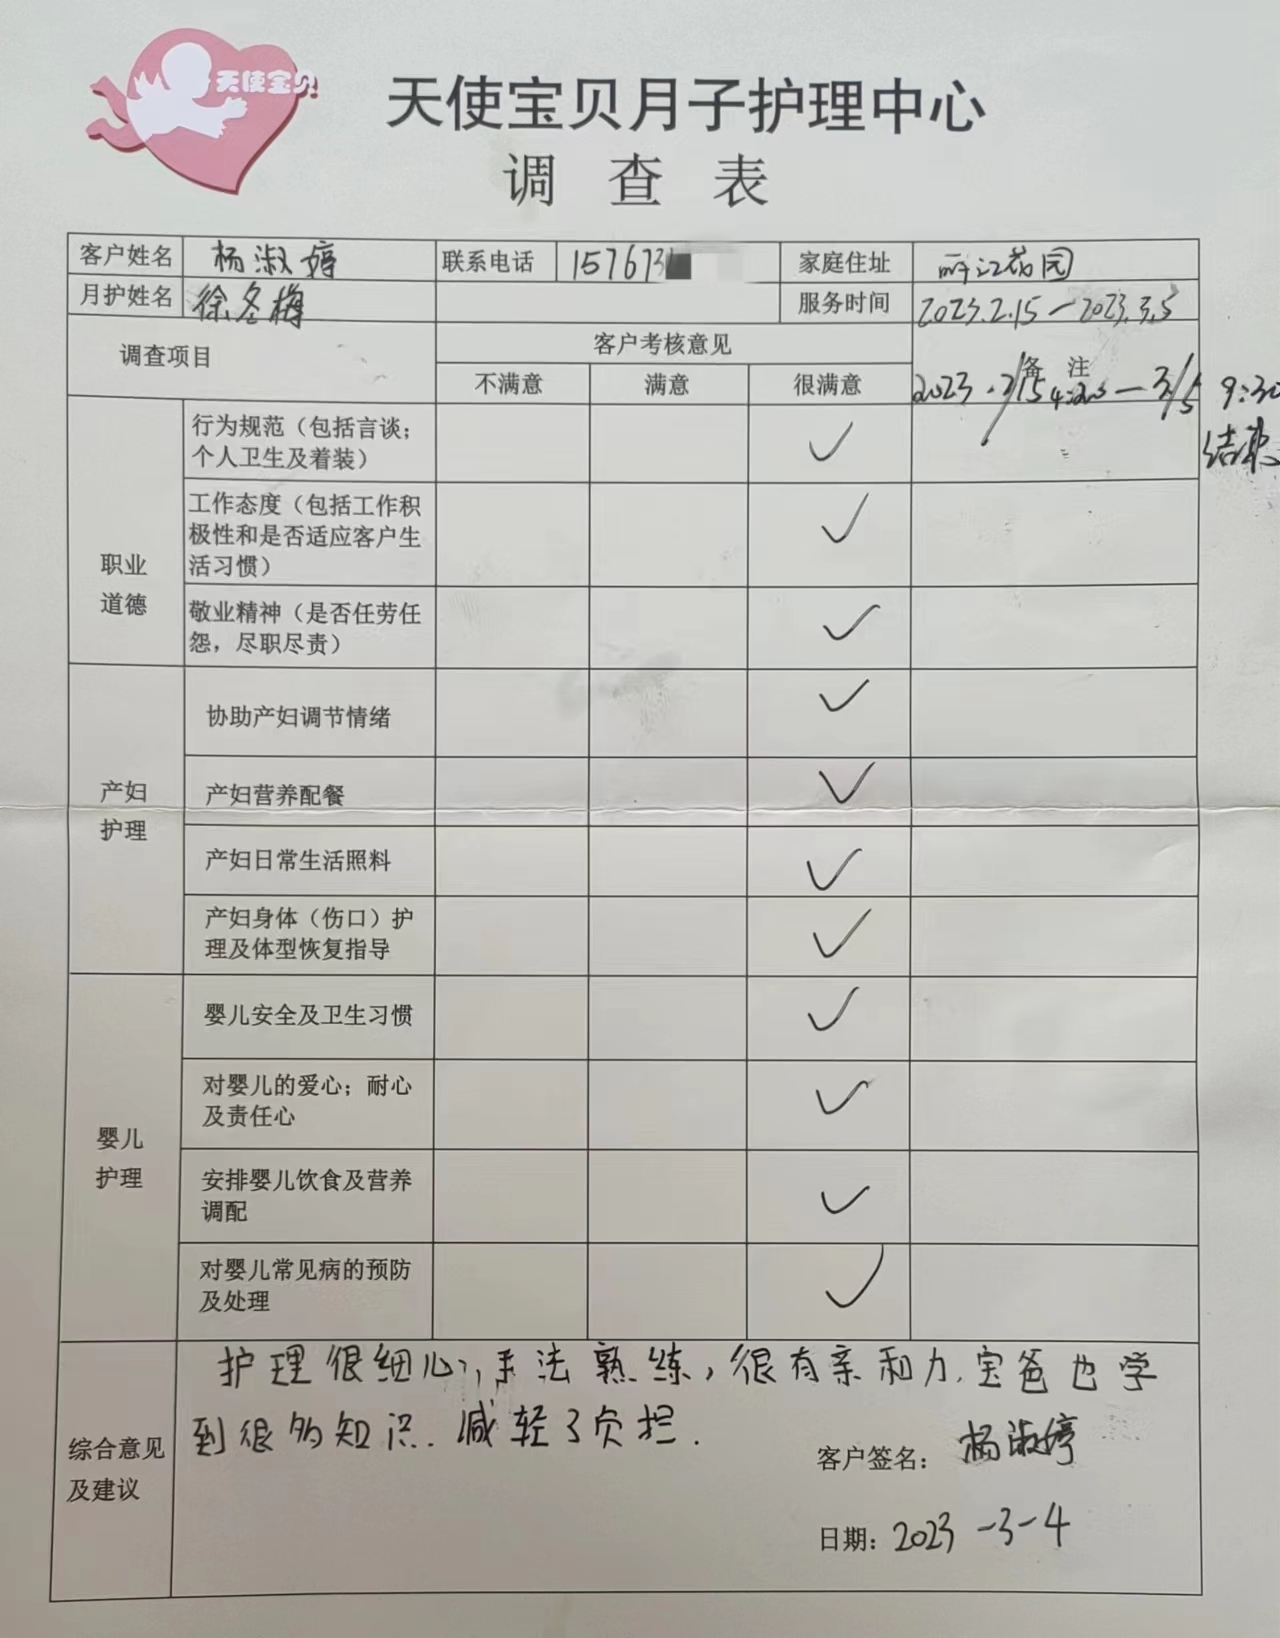 天使宝贝
天使宝贝月子护理中心
调查表
客户姓名 杨淑婷 联系电话 1576731 家庭住址 丽江花园
月护姓名 徐冬梅 服务时间 2023.2.15—2023.3.5
调查项目 客户考核意见 备注
不满意 满意 很满意
2023.2/15 4:20—3/5 9:30
结束
职业
道德
行为规范（包括言谈；
个人卫生及着装） ✓
工作态度（包括工作积
极性和是否适应客户生
活习惯） ✓
敬业精神（是否任劳任
怨，尽职尽责） ✓
产妇
护理
协助产妇调节情绪 ✓
产妇营养配餐 ✓
产妇日常生活照料 ✓
产妇身体（伤口）护
理及体型恢复指导 ✓
婴儿
护理
婴儿安全及卫生习惯 ✓
对婴儿的爱心；耐心
及责任心 ✓
安排婴儿饮食及营养
调配 ✓
对婴儿常见病的预防
及处理 ✓
综合意见
及建议
护理很细心，手法熟练，很有亲和力.宝爸也学
到很多知识.减轻了负担.
客户签名：杨淑婷
日期：2023-3-4